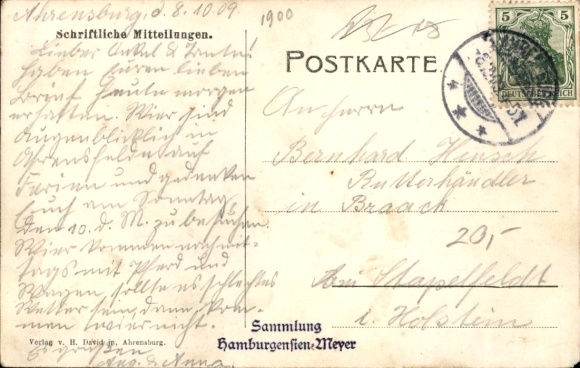 Ahrensburg, d. 8. 10. 09.
1900
Schriftliche Mitteilungen.
Lieber Onkel & Tante!
haben Euren lieben
Brief heute morgen
erhalten. Wir sind
augenblicklich in
Ahrensfelde auf
Ferien und gedenken
Euch am Sonntag
den 10. d. M. zu besuchen.
Wir kommen nachmit-
tags mit Pferd und
Wagen, sollte es schlechtes
Wetter sein, dann kom-
men wir nicht.
Es grüssen
Aug. & Anna.
Verlag v. H. David jr., Ahrensburg.
POSTKARTE.
5 5
DEUTSCHES REICH
An Herrn
Bernhard Hensch
Butterhändler
in Braack
20,-
bei Stapelfeldt
i. Holstein
Sammlung
Hamburgensien-Meyer